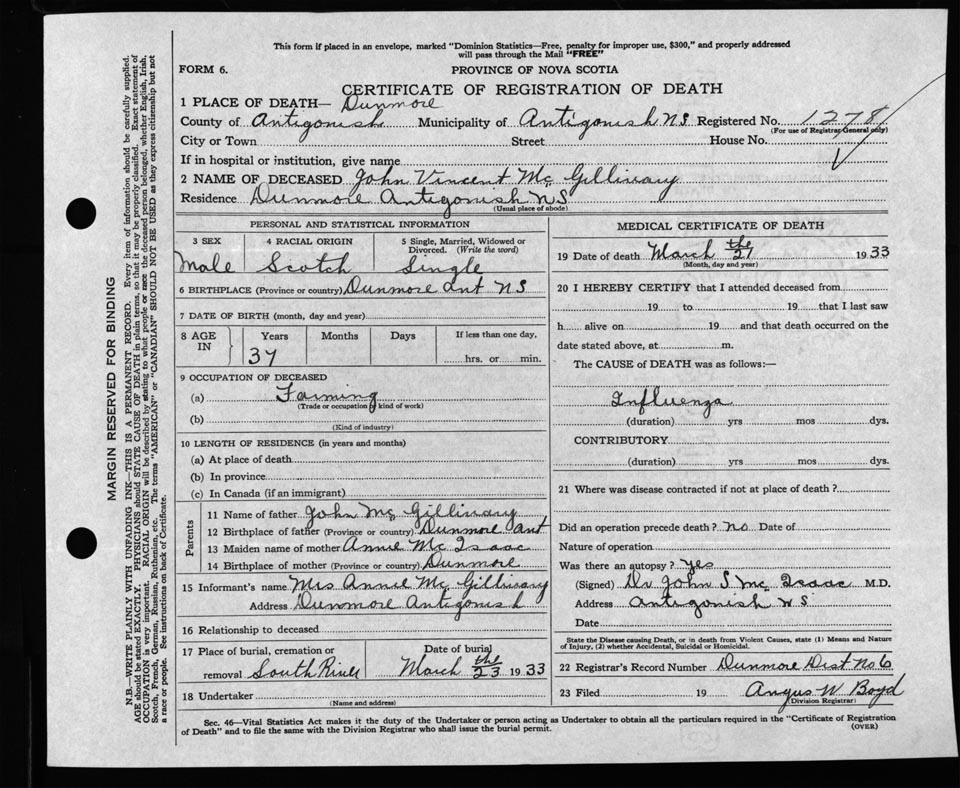 This form if placed in an envelope, marked "Dominion Statistics—Free, penalty for improper use, $300," and properly addressed
will pass through the Mail "FREE"
FORM 6.
PROVINCE OF NOVA SCOTIA
CERTIFICATE OF REGISTRATION OF DEATH
1 PLACE OF DEATH— Dunmore
County of Antigonish Municipality of Antigonish NS Registered No. 1278
(For use of Registrar General only)
City or Town Street House No.
If in hospital or institution, give name
2 NAME OF DECEASED John Vincent Mc Gillivary
Residence Dunmore Antigonish NS
(Usual place of abode)
PERSONAL AND STATISTICAL INFORMATION
3 SEX 4 RACIAL ORIGIN 5 Single, Married, Widowed or Divorced. (Write the word)
Male Scotch Single
6 BIRTHPLACE (Province or country) Dunmore Ant NS
7 DATE OF BIRTH (month, day and year)
8 AGE IN Years Months Days If less than one day,
37 hrs. or min.
9 OCCUPATION OF DECEASED
(a) Farming
(Trade or occupation / kind of work)
(b)
(Kind of industry)
10 LENGTH OF RESIDENCE (in years and months)
(a) At place of death
(b) In province
(c) In Canada (if an immigrant)
Parents
11 Name of father John Mc Gillivary
12 Birthplace of father (Province or country) Dunmore Ant
13 Maiden name of mother Annie Mc Isaac
14 Birthplace of mother (Province or country) Dunmore
15 Informant's name Mrs Annie Mc Gillivary
Address Dunmore Antigonish
16 Relationship to deceased
17 Place of burial, cremation or Date of burial
removal South River March the 23 1933
18 Undertaker
(Name and address)
MEDICAL CERTIFICATE OF DEATH
19 Date of death March the 21 1933
(Month, day and year)
20 I HEREBY CERTIFY that I attended deceased from
19 to 19 that I last saw
h alive on 19 and that death occurred on the
date stated above, at m.
The CAUSE of DEATH was as follows:—
Influenza
(duration) yrs mos dys.
CONTRIBUTORY
(duration) yrs mos dys.
21 Where was disease contracted if not at place of death?
Did an operation precede death? no Date of
Nature of operation
Was there an autopsy? yes
(Signed) Dr John S Mc Isaac M.D.
Address Antigonish NS
Date
State the Disease causing Death, or in death from Violent Causes, state (1) Means and Nature
of Injury, (2) whether Accidental, Suicidal or Homicidal.
22 Registrar's Record Number Dunmore Dist No 6
23 Filed 19 Angus W Boyd
(Division Registrar)
Sec. 46—Vital Statistics Act makes it the duty of the Undertaker or person acting as Undertaker to obtain all the particulars required in the "Certificate of Registration
of Death" and to file the same with the Division Registrar who shall issue the burial permit.
(OVER)
MARGIN RESERVED FOR BINDING
N.B.—WRITE PLAINLY WITH UNFADING INK—THIS IS A PERMANENT RECORD. Every item of information should be carefully supplied.
AGE should be stated EXACTLY. PHYSICIANS should STATE CAUSE OF DEATH in plain terms, so that it may be properly classified. Exact statement of
OCCUPATION is very important. RACIAL ORIGIN will be described by stating to what people or race the deceased person belonged, whether English, Irish,
Scotch, French, German, Russian, Ruthenian, etc. The terms "AMERICAN" or "CANADIAN" SHOULD NOT BE USED as they express citizenship but not
a race or people. See instructions on back of Certificate.